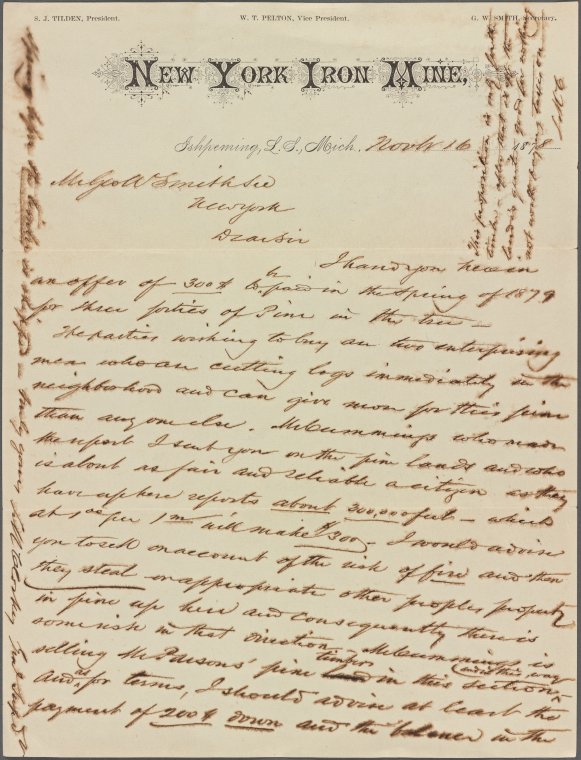 S. J. TILDEN, President.
W. T. PELTON, Vice President.
G. W. SMITH, Secretary.
NEW YORK IRON MINE.
Ishpeming, L. S., Mich. Novbr 16 1878
Mr Geo W Smith Sec
New York
Dear Sir
I hand you herein
an offer of 300$ to be paid in the Spring of 1879
for three forties of Pine in the tree —
The parties wishing to buy are two enterprising
men who are cutting logs immediately in the
neighborhood and can give more for this pine
than any one else. Mr Cummings who made
the report I sent you on the pine lands and who
is about as fair and reliable a citizen as they
have up here reports about 300,000 feet — which
at 1 00 per 1 m will make $300 — I would advise
you to sell on account of the risk of fire and then
they steal or appropriate other peoples property
in pine up here and consequently there is
some risk in that direction. Mr Cummings is
selling Mr Parsons' pine timber in this section and this way
And as for terms, I should advise at least the
payment of 200$ down and the balance in the
This proposition is only for the
timber — after that is off the
land is good for nothing
not worth paying taxes on
Spring after the timber is shipped — truly yours